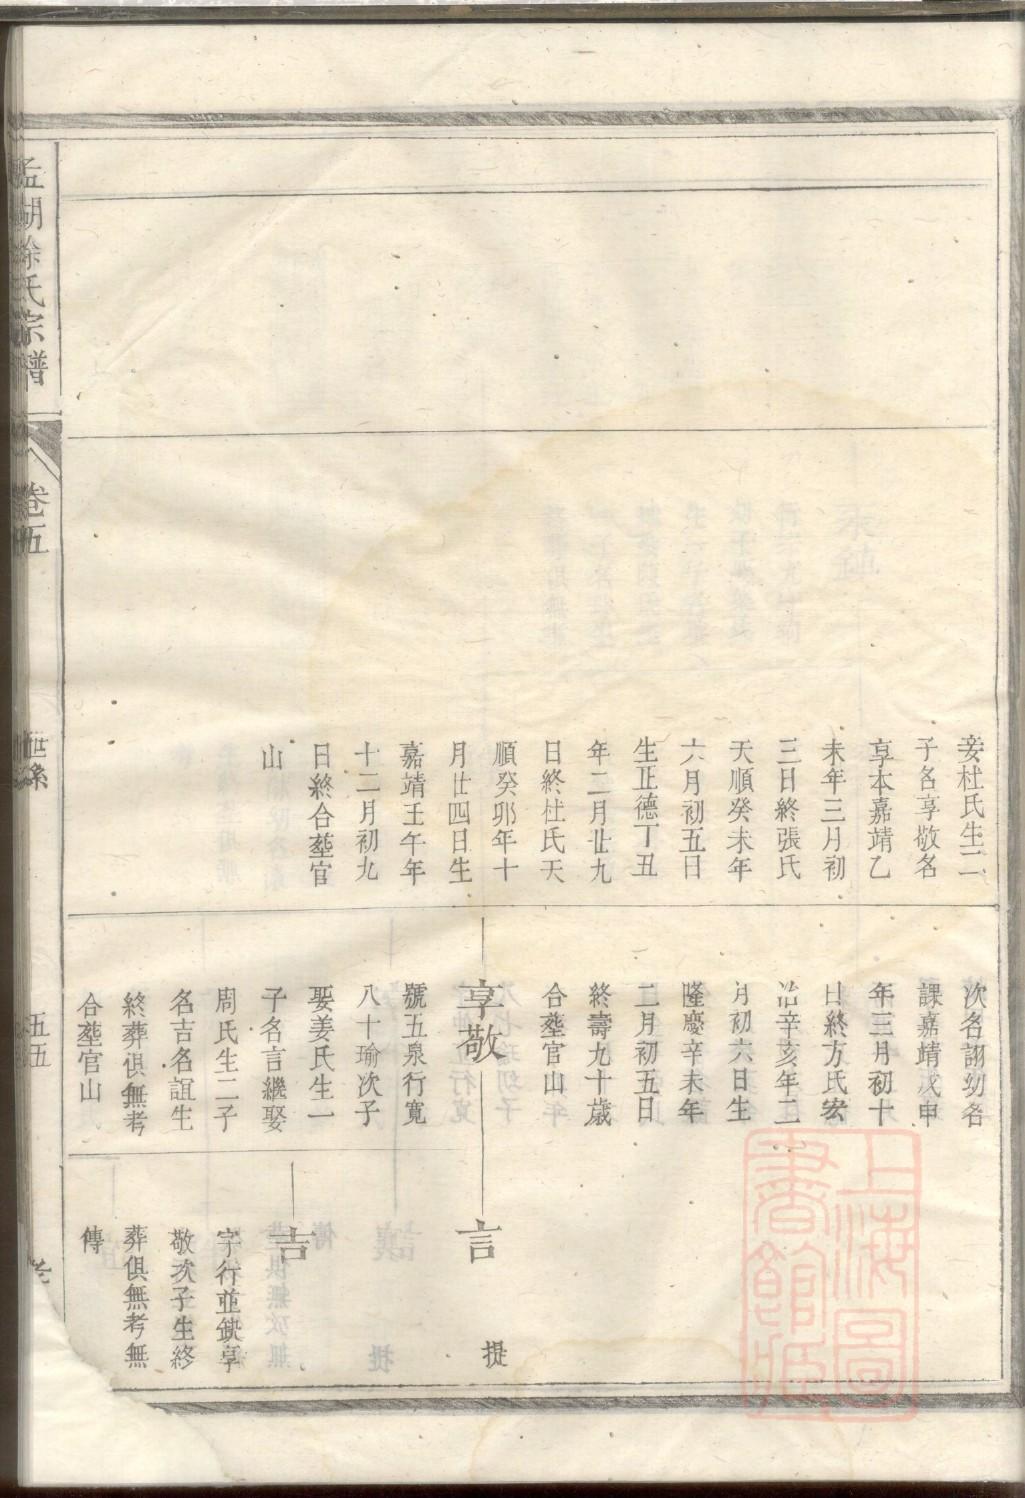 妾杜氏生二
子名享敬名
享本嘉靖乙
未年三月初
三日終張氏
天順癸未年
六月初五日
生正德丁丑
年二月廿九
日終杜氏天
順癸卯年十
月廿四日生
嘉靖壬午年
十二月初九
日終合塟官
山
次名詡幼名
課嘉靖戊申
年三月初十
日終方氏宏
治辛亥年二
月初六日生
隆慶辛未年
二月初五日
終壽九十歲
合塟官山
享敬
號五泉行寬
八十瑜次子
娶姜氏生一
子名言繼娶
周氏生二子
名吉名誼生
終葬俱無考
合塟官山
言
提
吉
字行並缺享
敬次子生終
葬俱無考無
傳
湖徐氏宗譜
卷五
世系
五五
上海圖書館藏